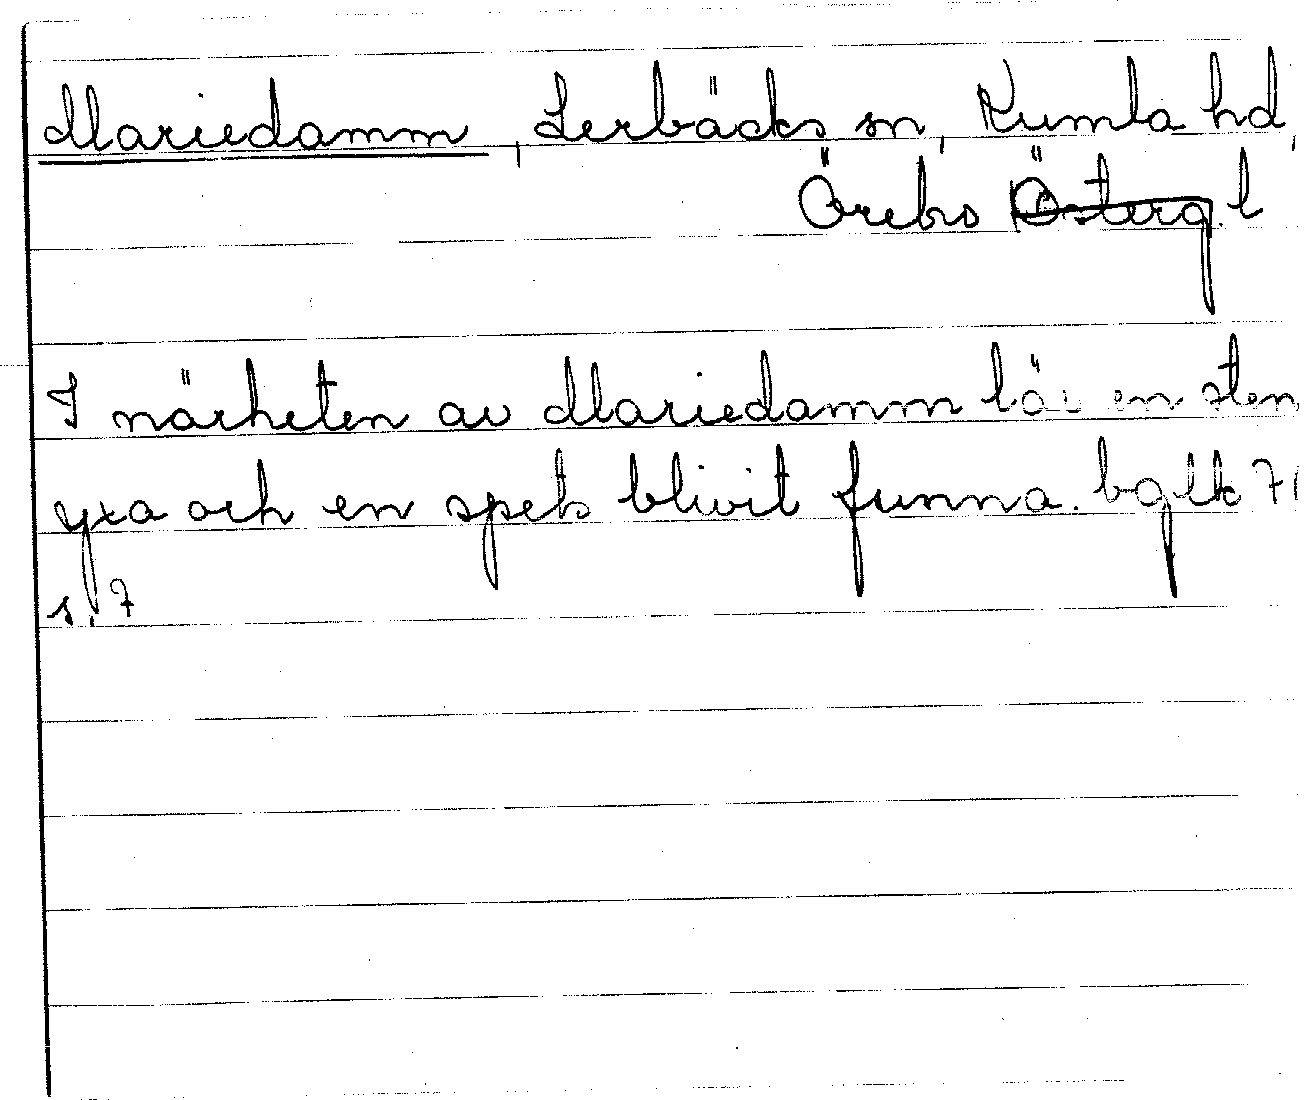 Mariedamm, Lerbäcks sn, Kumla hd,
Örebro Österg. l
I närheten av Mariedamm lär en sten
yxa och en spets blivit funna. bglk 71
s. 7